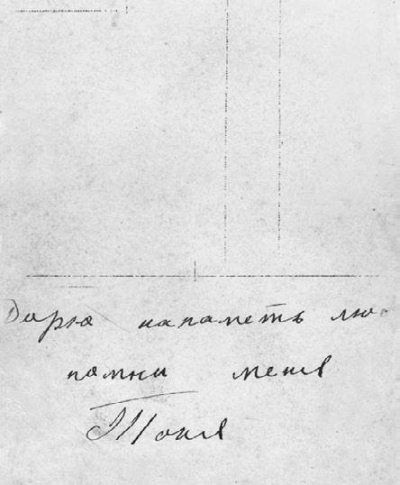 Дарю напаметь
помни меня
Тоня